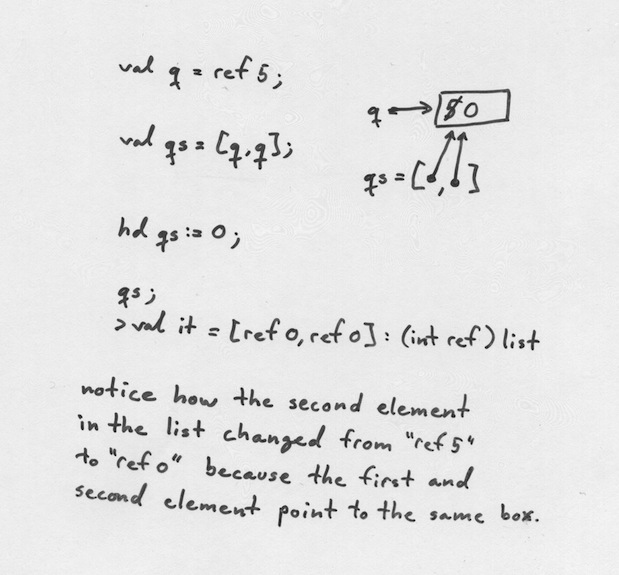 val q = ref 5;
q → 5 0
val qs = [q,q];
qs = [ , ]
hd qs := 0;
qs;
> val it = [ref 0, ref 0] : (int ref) list
notice how the second element
in the list changed from "ref 5"
to "ref 0" because the first and
second element point to the same box.